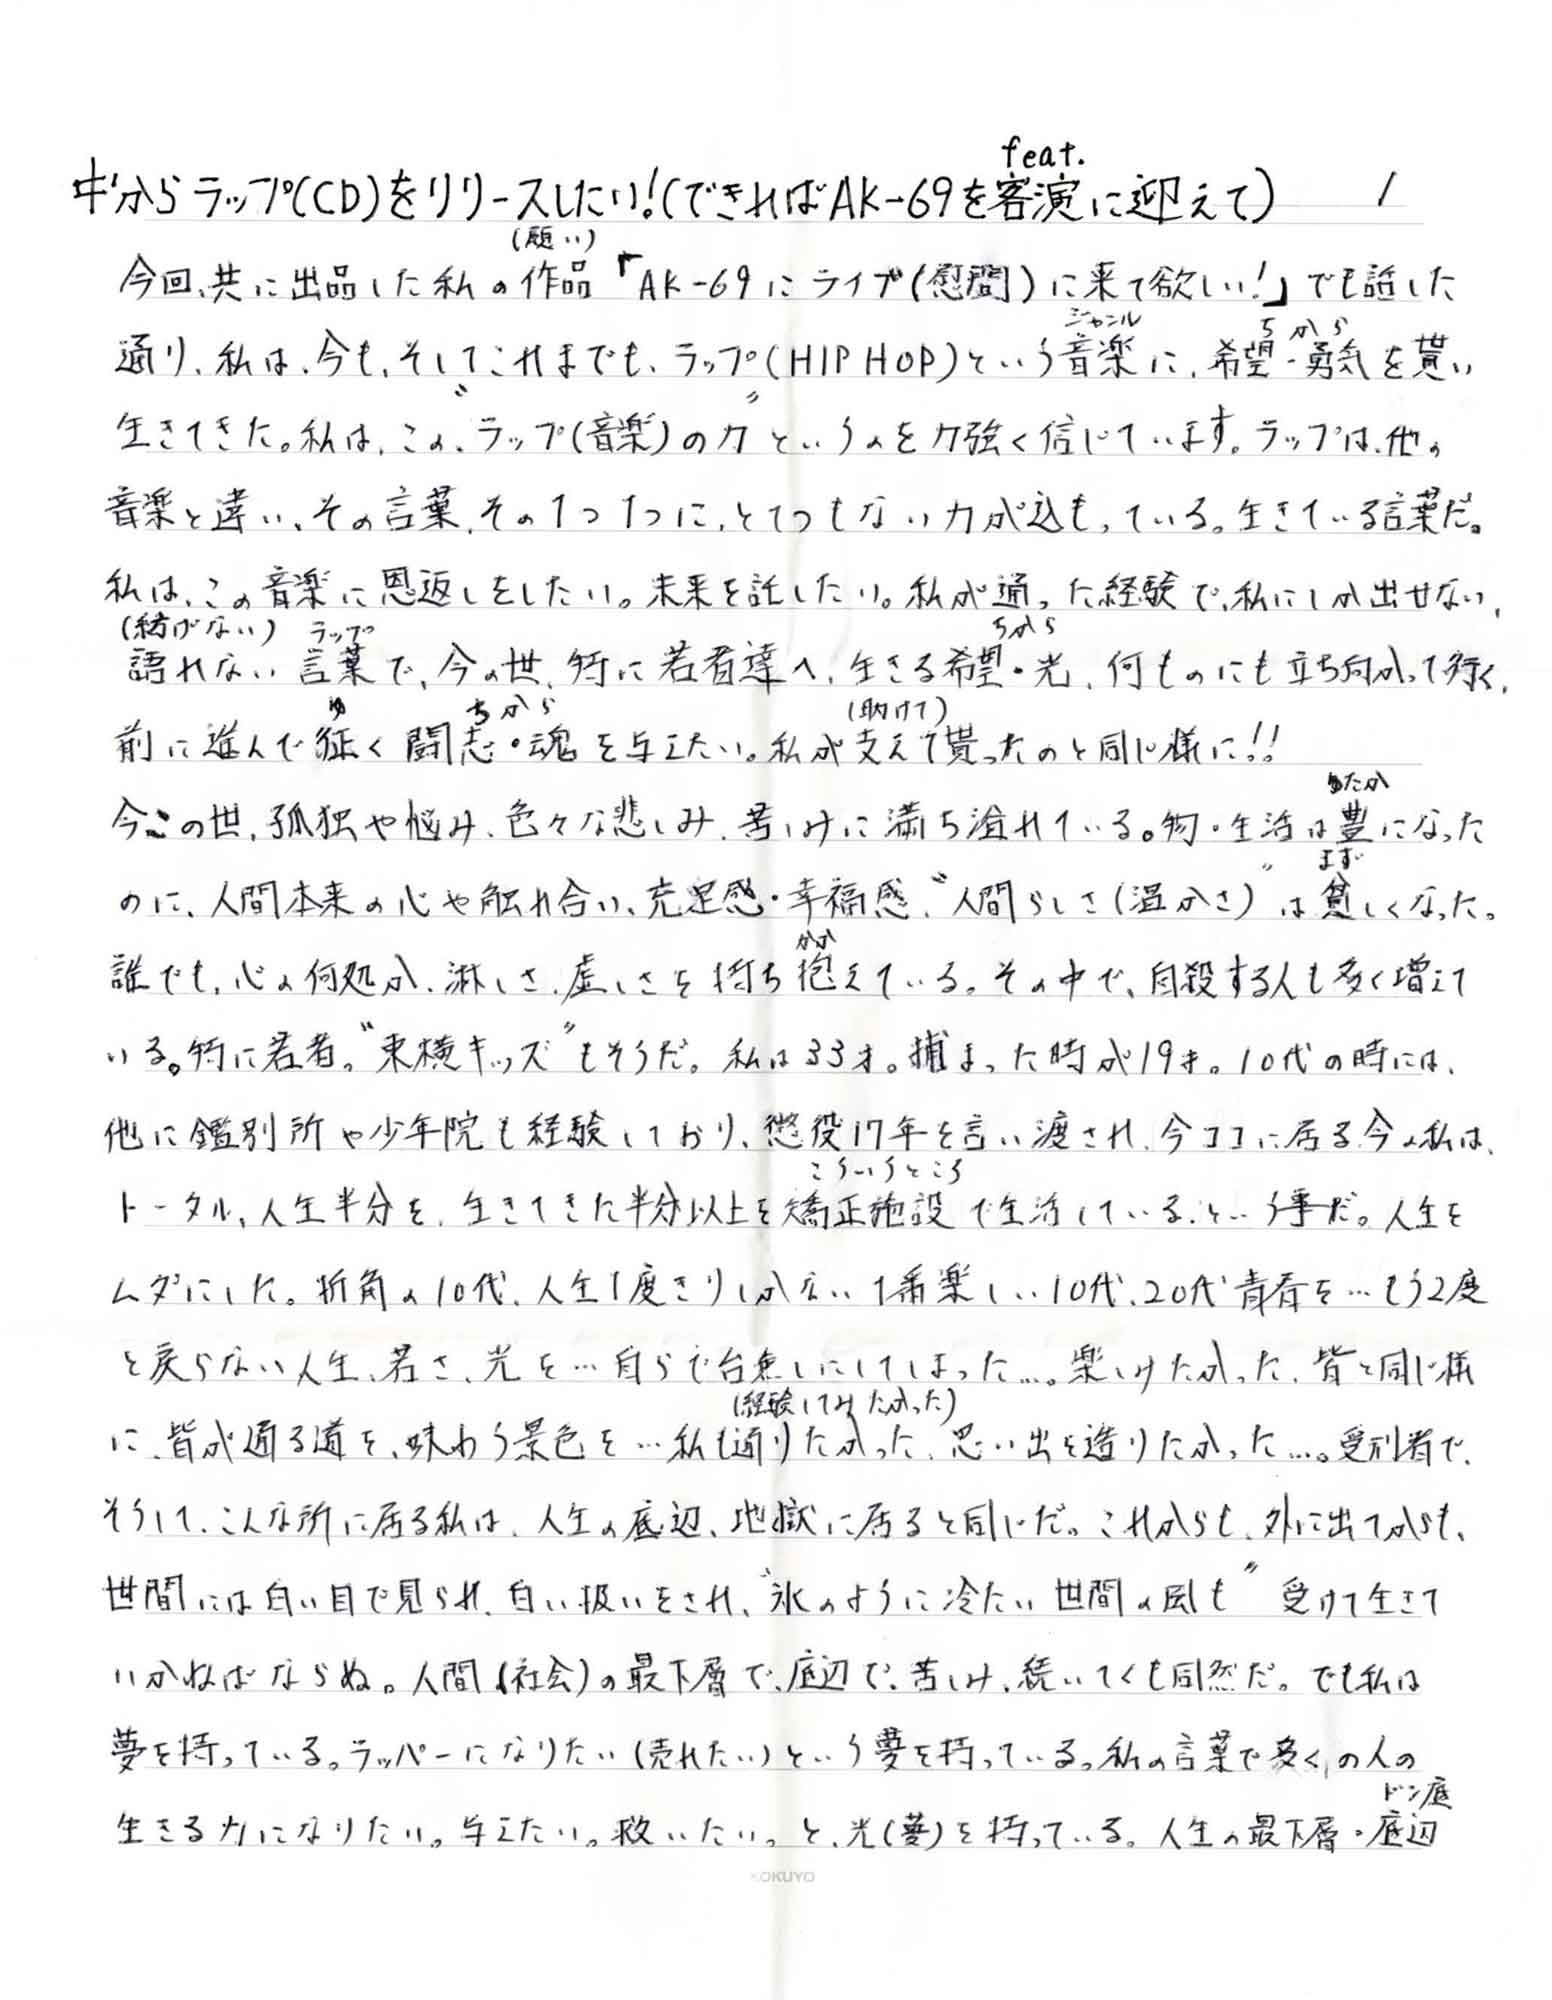 feat.
中からラップ(CD)をリリースしたい!(できればAK-69を客演に迎えて) 1
(願い)
今回、共に出品した私の作品「AK-69にライブ(慰問)に来て欲しい!」でも話した
ジャンル ちから
通り、私は、今も、そしてこれまでも、ラップ(HIP HOP)という音楽に、希望・勇気を貰い
生きてきた。私は、この、〝ラップ(音楽)の力〟というのを力強く信じています。ラップは、他の
音楽と違い、その言葉、その1つ1つに、とてつもない力が込もっている。生きている言葉だ。
私は、この音楽に恩返しをしたい。未来を託したい。私が通った経験で、私にしか出せない、
(紡げない) ラップ ちから
語れない言葉で、今の世、特に若者達へ、生きる希望・光、何ものにも立ち向かって行く、
ゆ ちから (助けて)
前に進んで征く闘志・魂を与えたい。私が支えて貰ったのと同じ様に!!
ゆたか
今この世、孤独や悩み、色々な悲しみ、苦しみに満ち溢れている。物・生活は豊になった
まず
のに、人間本来の心や触れ合い、充足感・幸福感、〝人間らしさ(温かさ)〟は貧しくなった。
かか
誰でも、心の何処か、淋しさ、虚しさを持ち抱えている。その中で、自殺する人も多く増えて
いる。特に若者。〝東横キッズ〟もそうだ。私は33才。捕まった時が19才。10代の時には、
他に鑑別所や少年院も経験しており、懲役17年を言い渡され、今ココに居る今の私は、
こういうところ
トータル、人生半分を、生きてきた半分以上を矯正施設で生活している、という事だ。人生を
ムダにした。折角の10代、人生1度きりしかない1番楽しい10代、20代青春を…もう2度
と戻らない人生、若さ、光を…自らで台無しにしてしまった…。楽しみたかった、皆と同じ様
(経験してみたかった)
に、皆が通る道を、味わう景色を…私も通りたかった、思い出を造りたかった…。受刑者で、
そうして、こんな所に居る私は、人生の底辺、地獄に居ると同じだ。これからも、外に出てからも、
世間には白い目で見られ、白い扱いをされ、〝氷のように冷たい世間の風も〟受けて生きて
いかねばならぬ。人間(社会)の最下層で、底辺で、苦しみ、続いてくも同然だ。でも私は
夢を持っている。ラッパーになりたい(売れたい)という夢を持っている。私の言葉で多くの人の
ドン底
生きる力になりたい。与えたい。救いたい。と、光(夢)を持っている。人生の最下層・底辺
KOKUYO